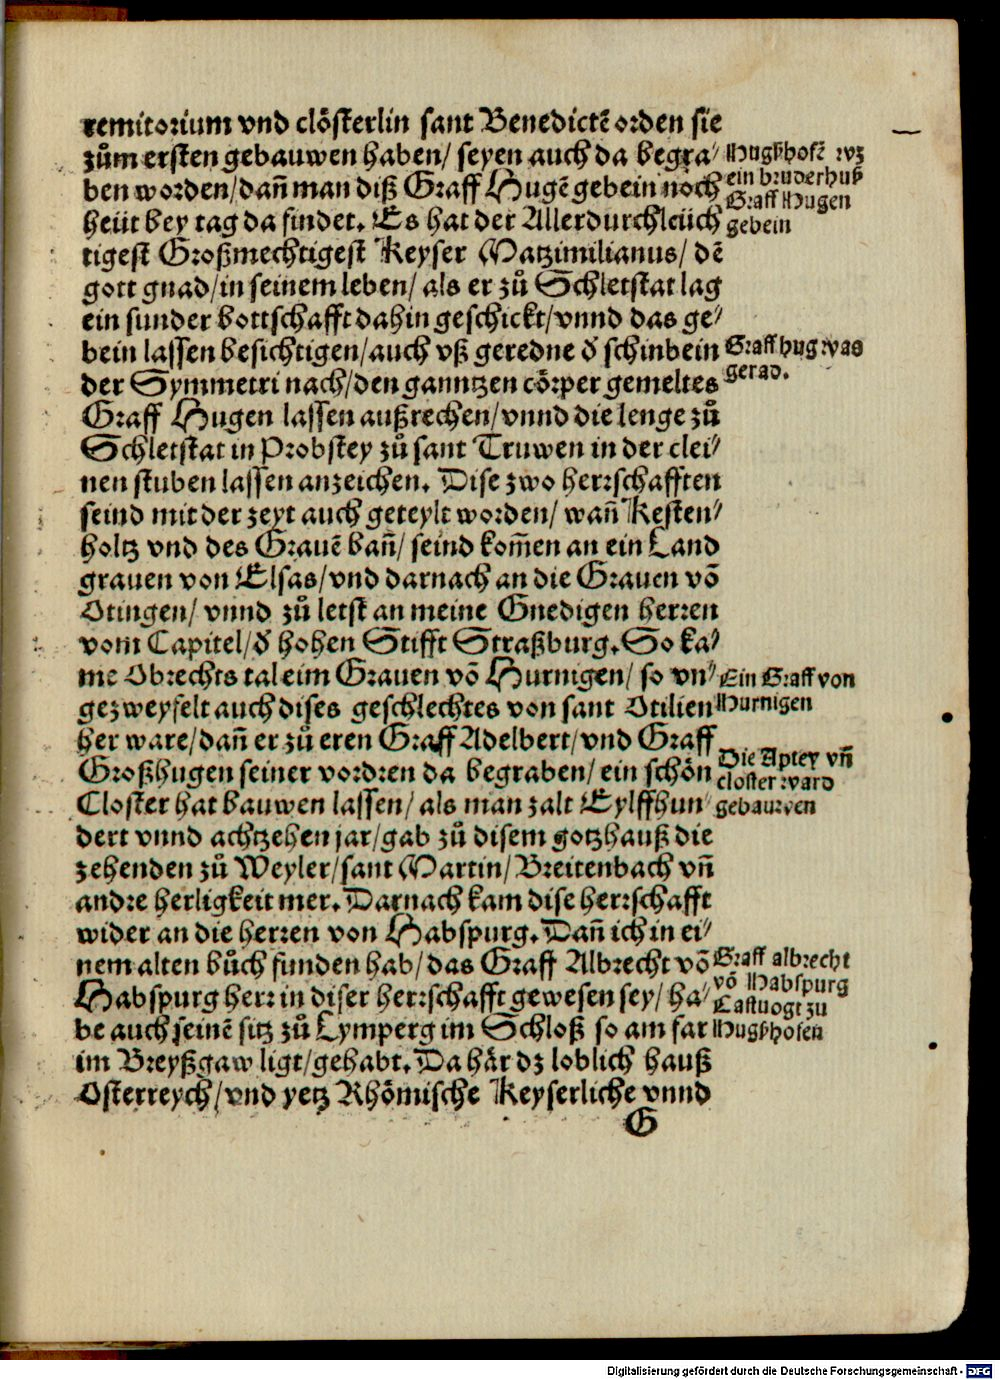 remitorium vnd clösterlin sant Benedictē orden sie
zům ersten gebauwen haben/ seyen auch da begra⸗
ben worden/ dañ man diß Graff Hugē gebein noch
heüt bey tag da findet. Es hat der Allerdurchleüch
tigest Großmechtigest Keyser Matzimilianus/ dē
gott gnad/ in seinem leben/ als er zů Schletstat lag
ein sunder bottschafft dahin geschickt/ vnnd das ge⸗
bein lassen besichtigen/ auch vß geredne d̛ schinbein
der Symmetri nach/ den ganntzen cörper gemeltes
Graff Hugen lassen außrechen/ vnnd die lenge zů
Schletstat in Probstey zů sant Truwen in der clei⸗
nen stuben lassen anzeichen. Dise zwo herrschafften
seind mit der zeyt auch geteylt worden/ wañ Kesten⸗
holtz vnd des Grauē bañ/ seind kom̄en an ein Land
grauen von Elsas/ vnd darnach an die Grauen vō
Otingen/ vnnd zů letst an meine Gnedigen herren
vom Capitel/ d̛ hohen Stifft Straßburg. So ka⸗
me Obrechts tal eim Grauen vō Hurnigen/ so vn⸗
gezweyfelt auch dises geschlechtes von sant Otilien
her ware/ dañ er zů eren Graff Adelbert/ vnd Graff
Großhugen seiner vordren da begraben/ ein schön
Closter hat bauwen lassen/ als man zalt Eylffhun
dert vnnd achtzehen jar/ gab zů disem gotzhauß die
zehenden zů Weyler/ sant Martin/ Breitenbach vñ
andre herligkeit mer. Darnach kam dise herrschafft
wider an die herren von Habspurg. Dañ ich in ei⸗
nem alten bůch funden hab/ das Graff Albrecht vō
Habspurg herr in diser herrschafft gewesen sey/ ha⸗
be auch seinē sitz zů Lymperg im Schloß so am far
im Breyßgaw ligt/ gehabt. Da här dz loblich hauß
Osterreych/ vnd yetz Rhömische Keyserliche vnnd
G
Hugßhofē wz
ein bruderhuß
Graff Hugen
gebein
Graff hug was
gerad.
Ein Graff von
Hurnigen
Die Aptey vñ
closter ward
gebauwen
Graff albrecht
vō Habspurg
Castuogt zu
Hugßhofen
Digitalisierung gefördert durch die Deutsche Forschungsgemeinschaft - DFG